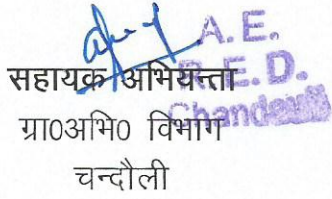 A. E.
R. E. D.
Chandauli
सहायक अभियन्ता
ग्रा०अभि० विभाग
चन्दौली